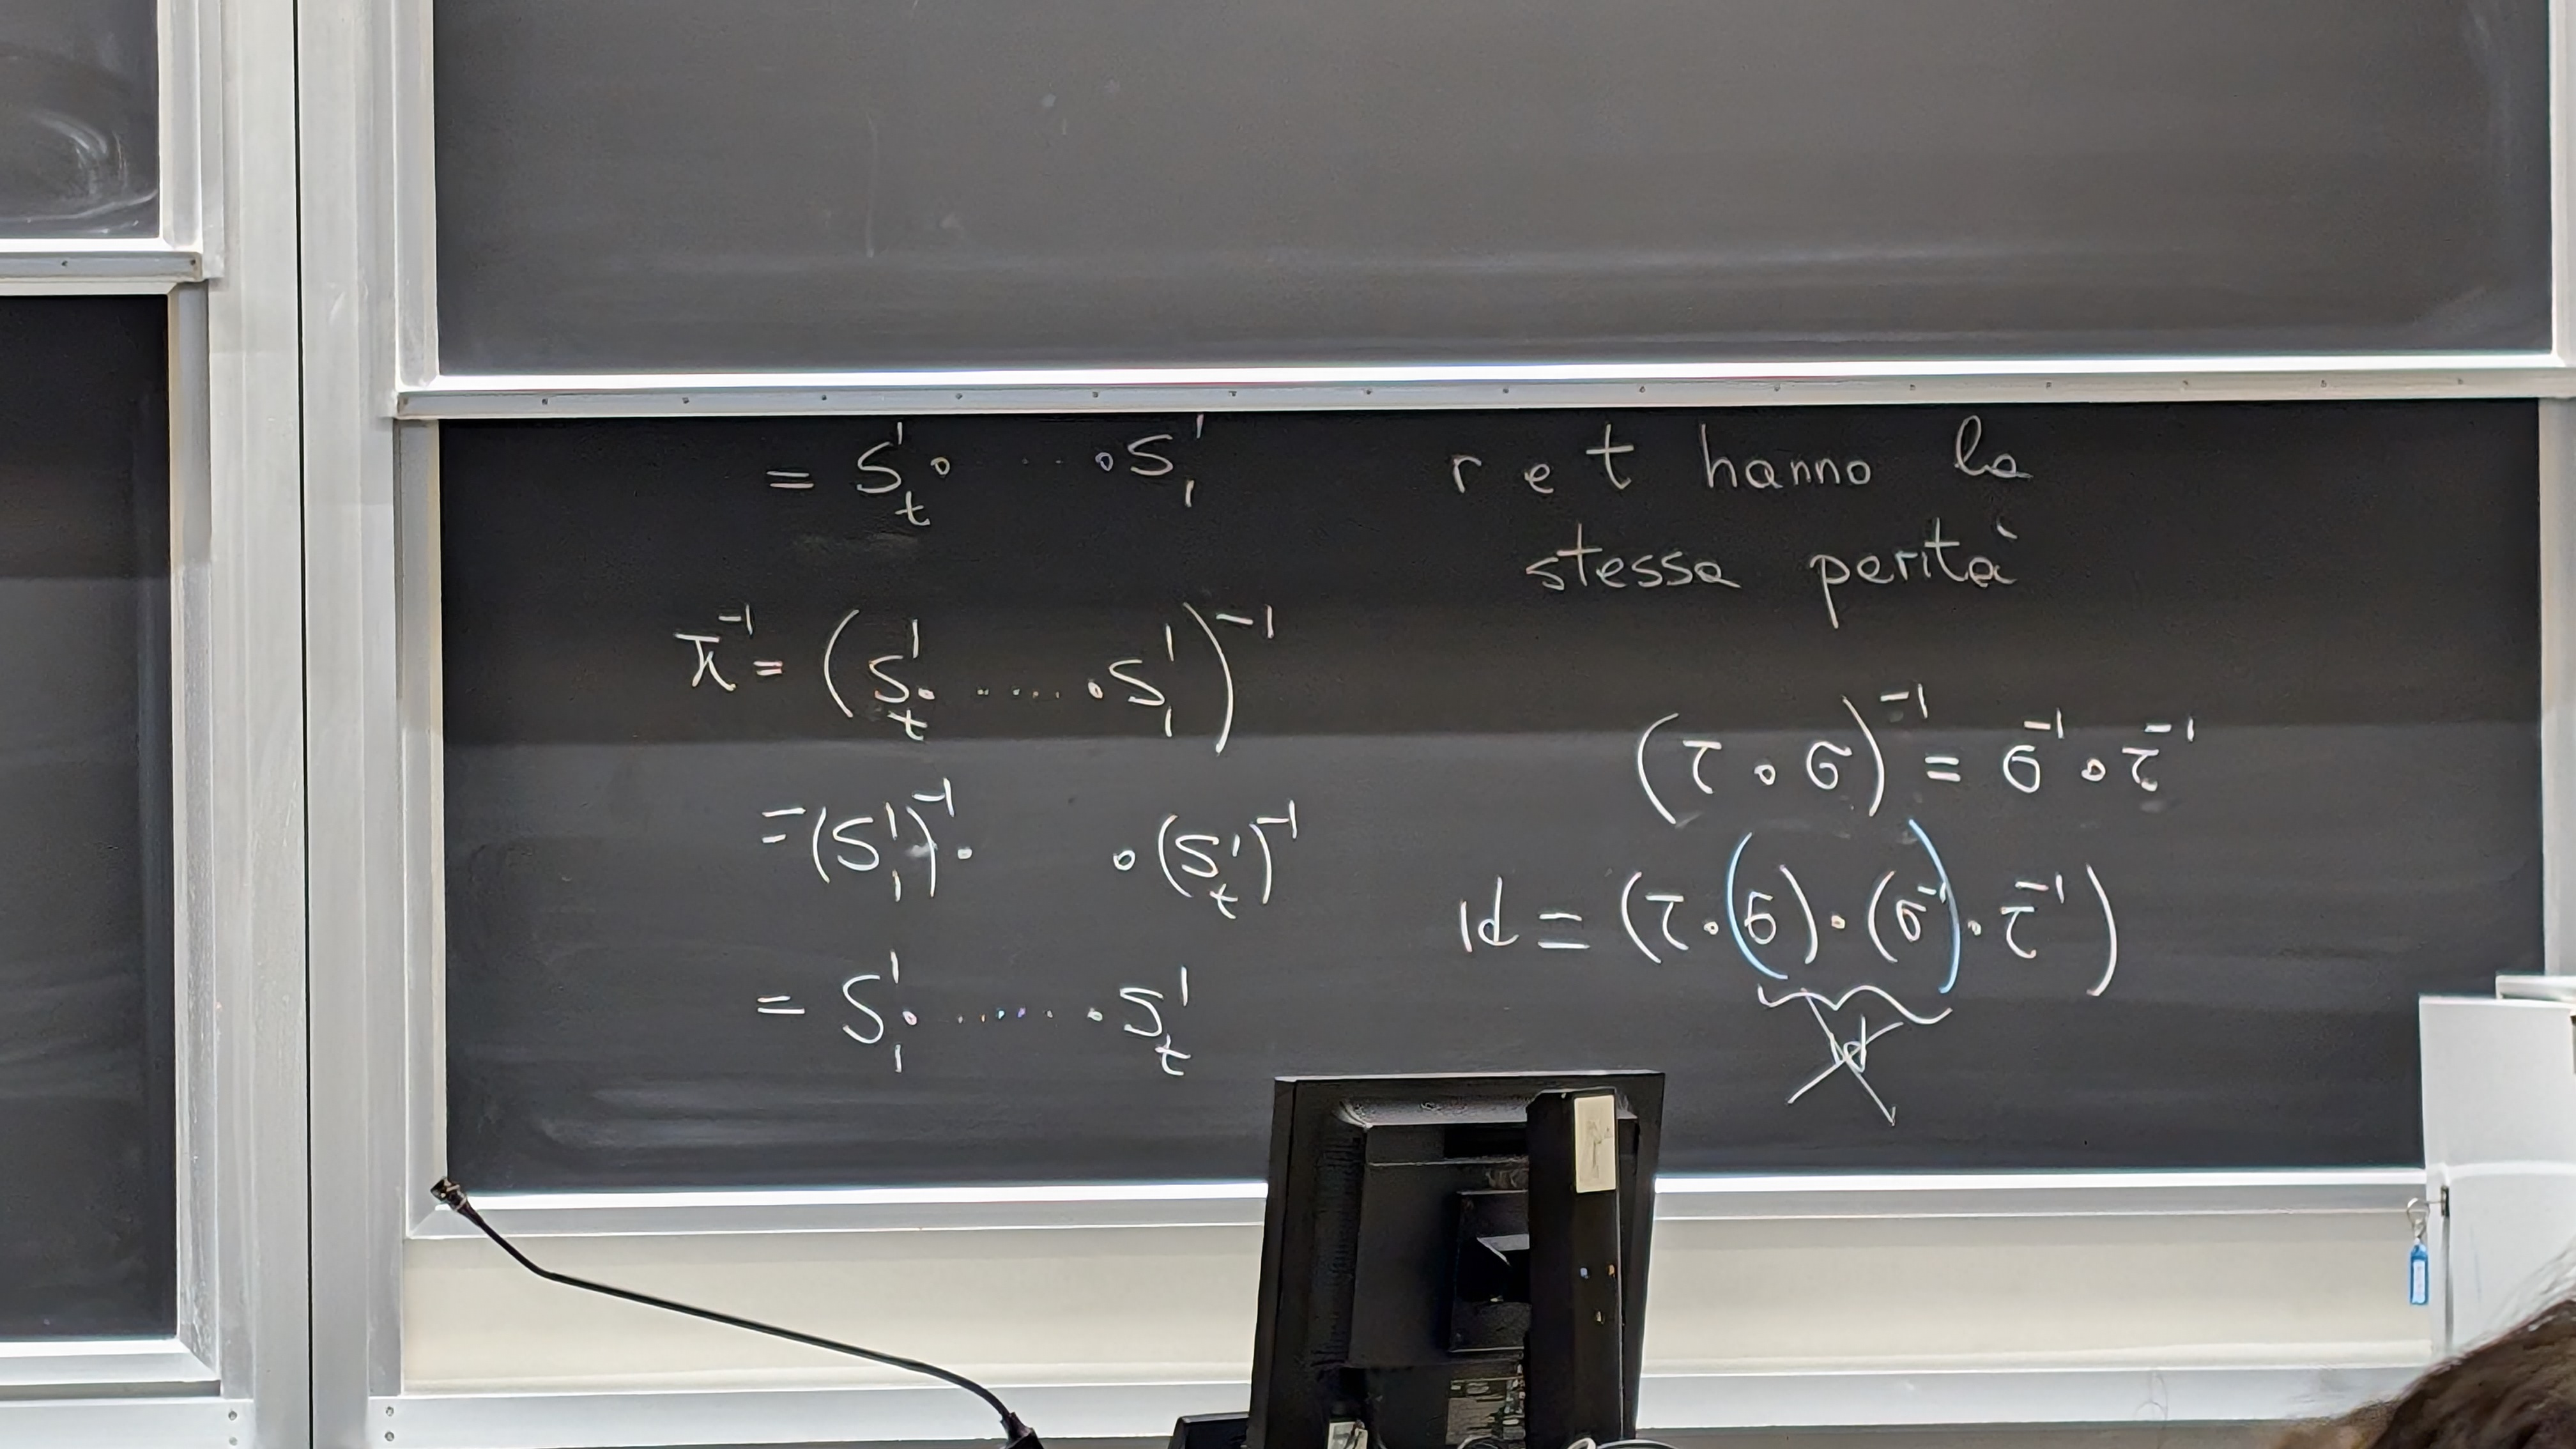 = S'_t ∘ ... ∘ S'_1
π^-1 = (S'_t ∘ ..... ∘ S'_1)^-1
= (S'_1)^-1 ∘ ∘ (S'_t)^-1
= S'_1 ∘ ....... ∘ S'_t
r e t hanno la
stessa parità
(τ ∘ σ)^-1 = σ^-1 ∘ τ^-1
Id = (τ ∘ (σ) ∘ (σ^-1) ∘ τ^-1)
Id